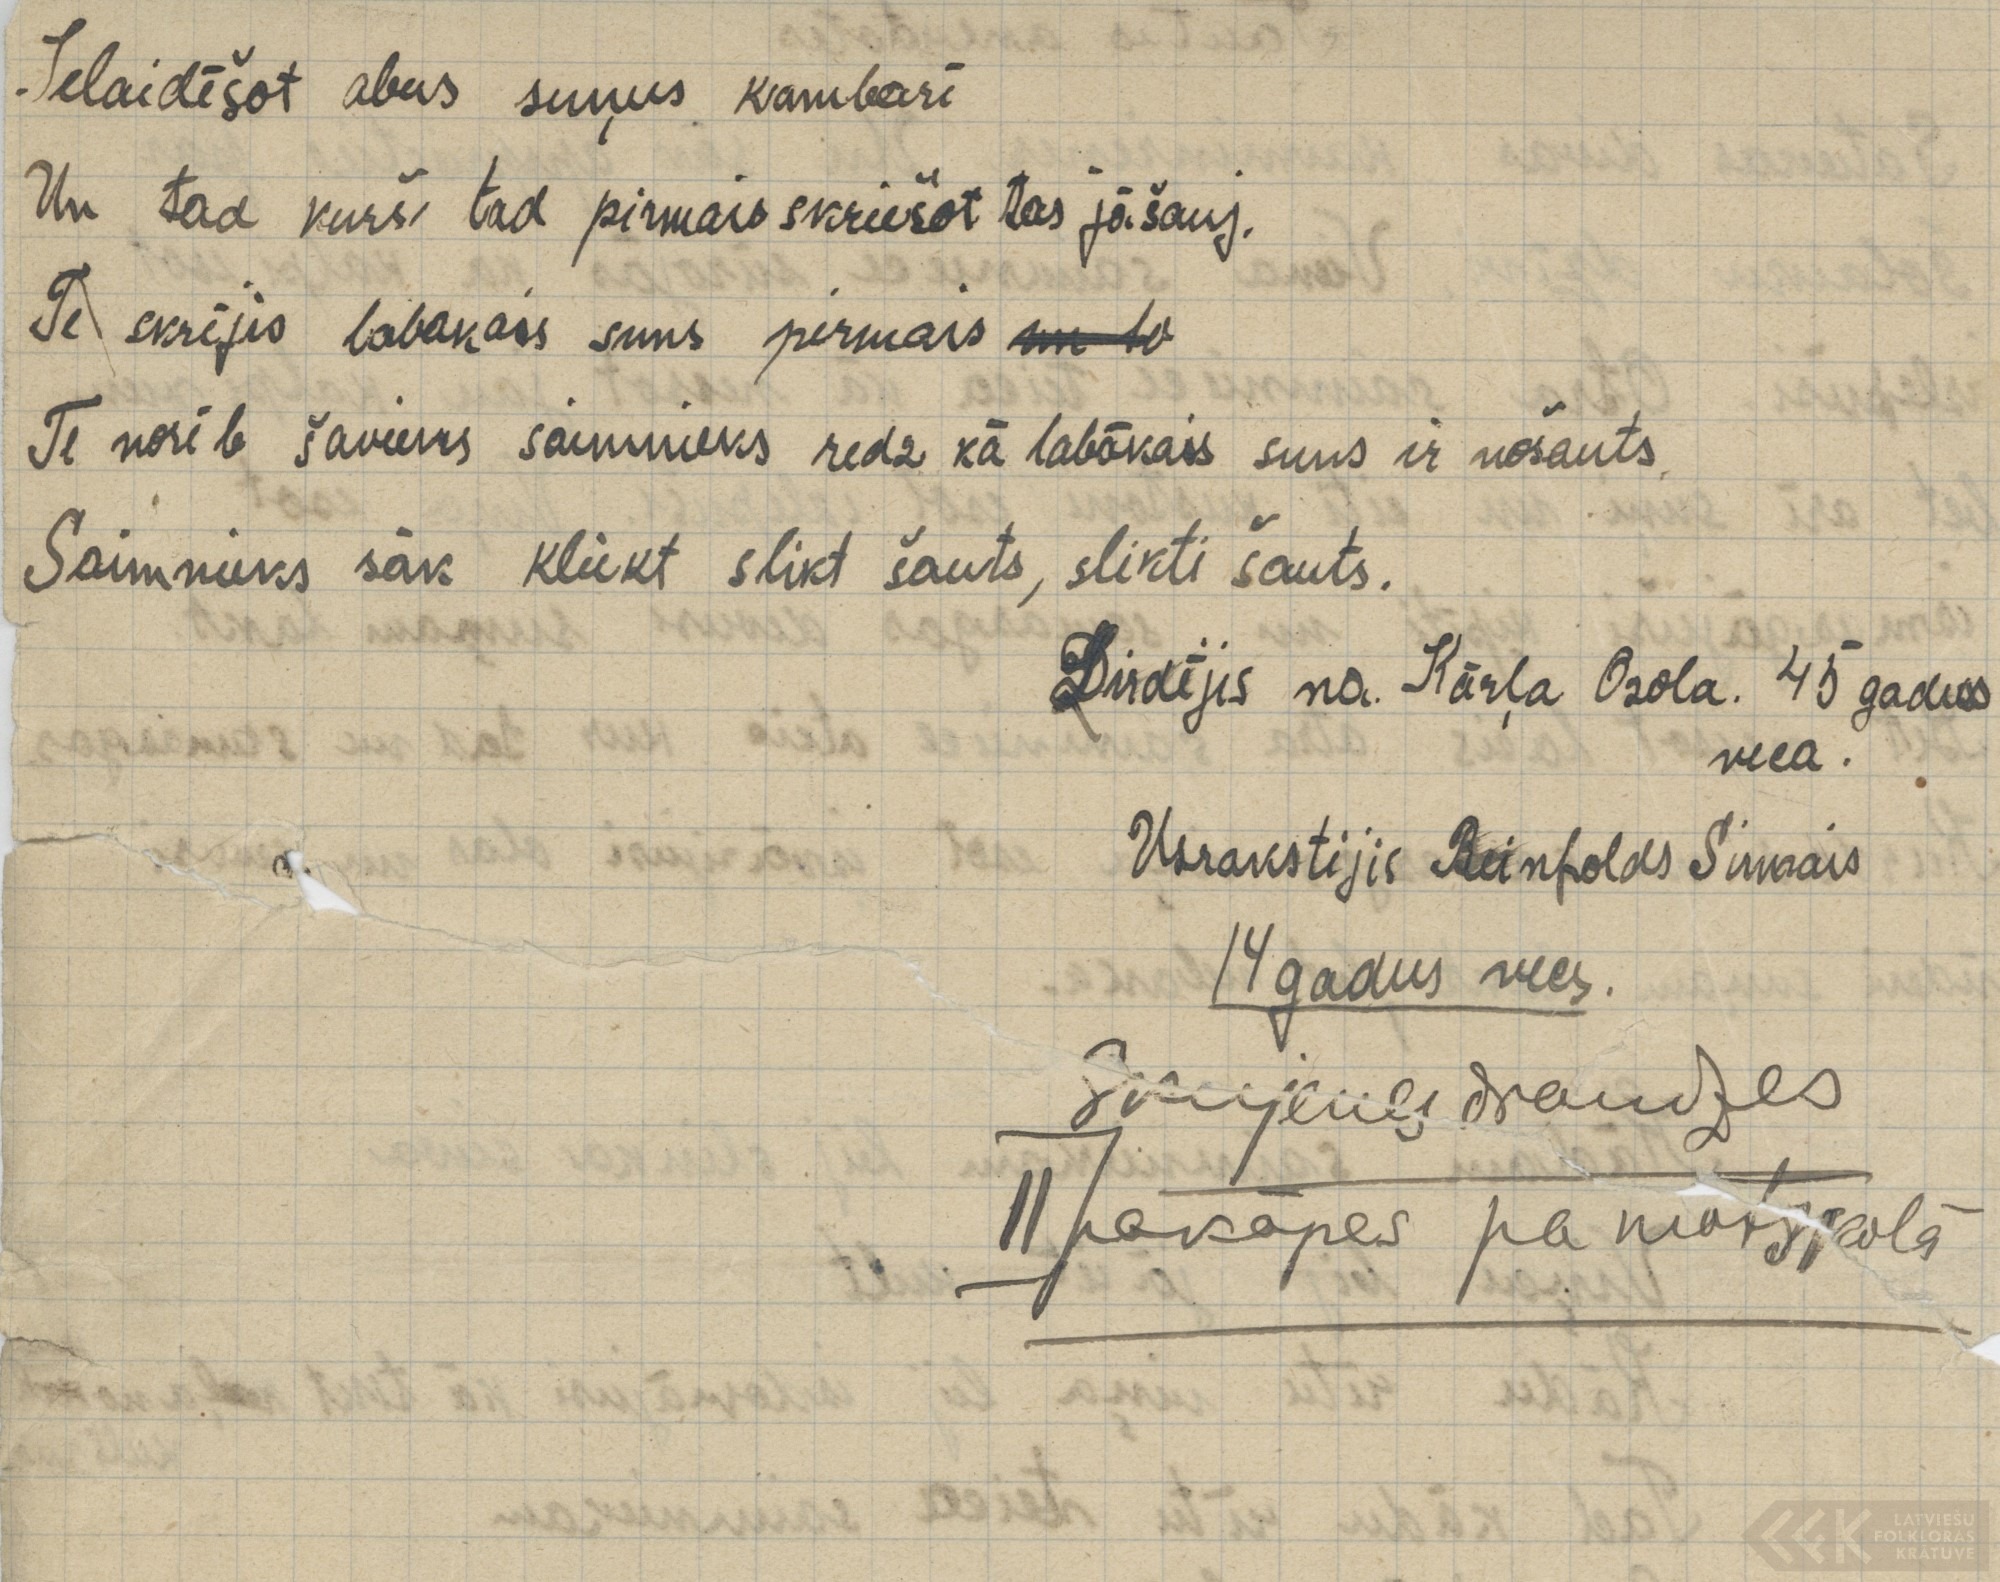 Ielaidīšot abus suņus kambarī
Un tad kurš tad pirmais skriešot tas jāšauj.
Te skrējis labakais suns pirmais un to
Te norīb šaviens saimnieks redz kā labākais suns ir nošauts.
Saimnieks sāk kliekt slikt šauts, slikti šauts.
Dirdējis no. Kārļa Ozola. 45 gadus
veca.
Usrakstijis Reinholds Sirmais
14 gadus vecs.
Rūjienes draudzes
II pakāpes pa matskolā
LATVIEŠU
FOLKLORAS
KRĀTUVE